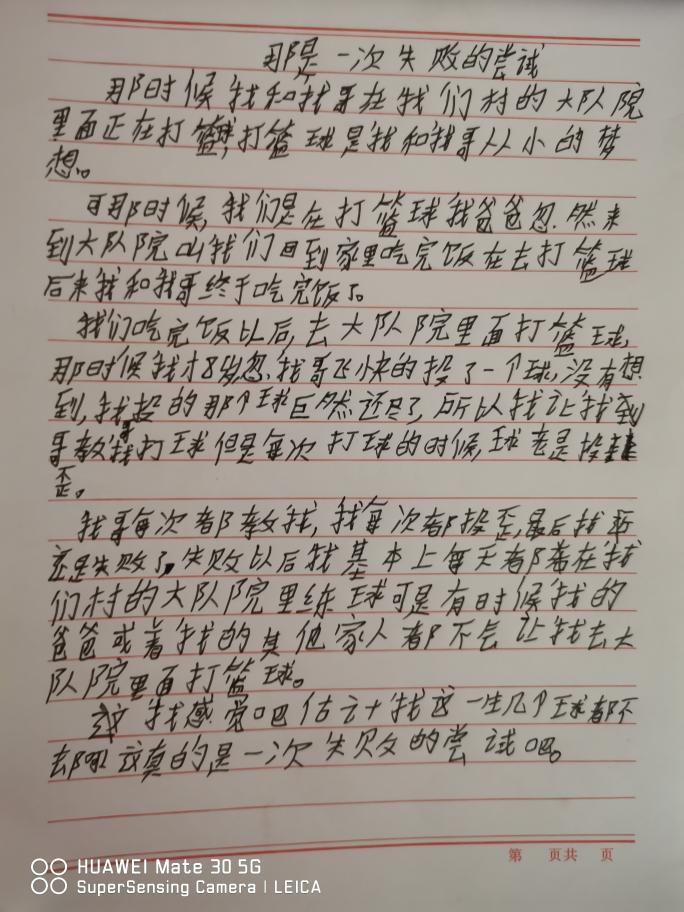 那是一次失败的尝试
那时候我和我哥在我们村的大队院
里面正在打篮球,打篮球是我和我哥从小的梦
想。
可那时候,我们是在打篮球我爸爸忽.然来
到大队院叫我们回到家里吃完饭在去打篮球
后来我和我哥终于吃完饭了。
我们吃完饭以后,去大队院里面打篮球,
那时候我才8岁忽.我哥飞快的投了一个球,没有想
到,我投的那个球巨然还尽了,所以我让我到
哥教我打球但是每次打球的时候,球老是投
歪。
我哥每次都教我,我每次都投歪,最后我
还是失败了,失败以后我基本上每天都着在我
们村的大队院里练球可是有时候我的
爸爸或着我的其他家人都不会让我去大
队院里面打篮球。
我感觉吧估计我这一生几个球都不
去那这真的是一次失败的尝试吧。
第 页共 页
HUAWEI Mate 30 5G
SuperSensing Camera | LEICA